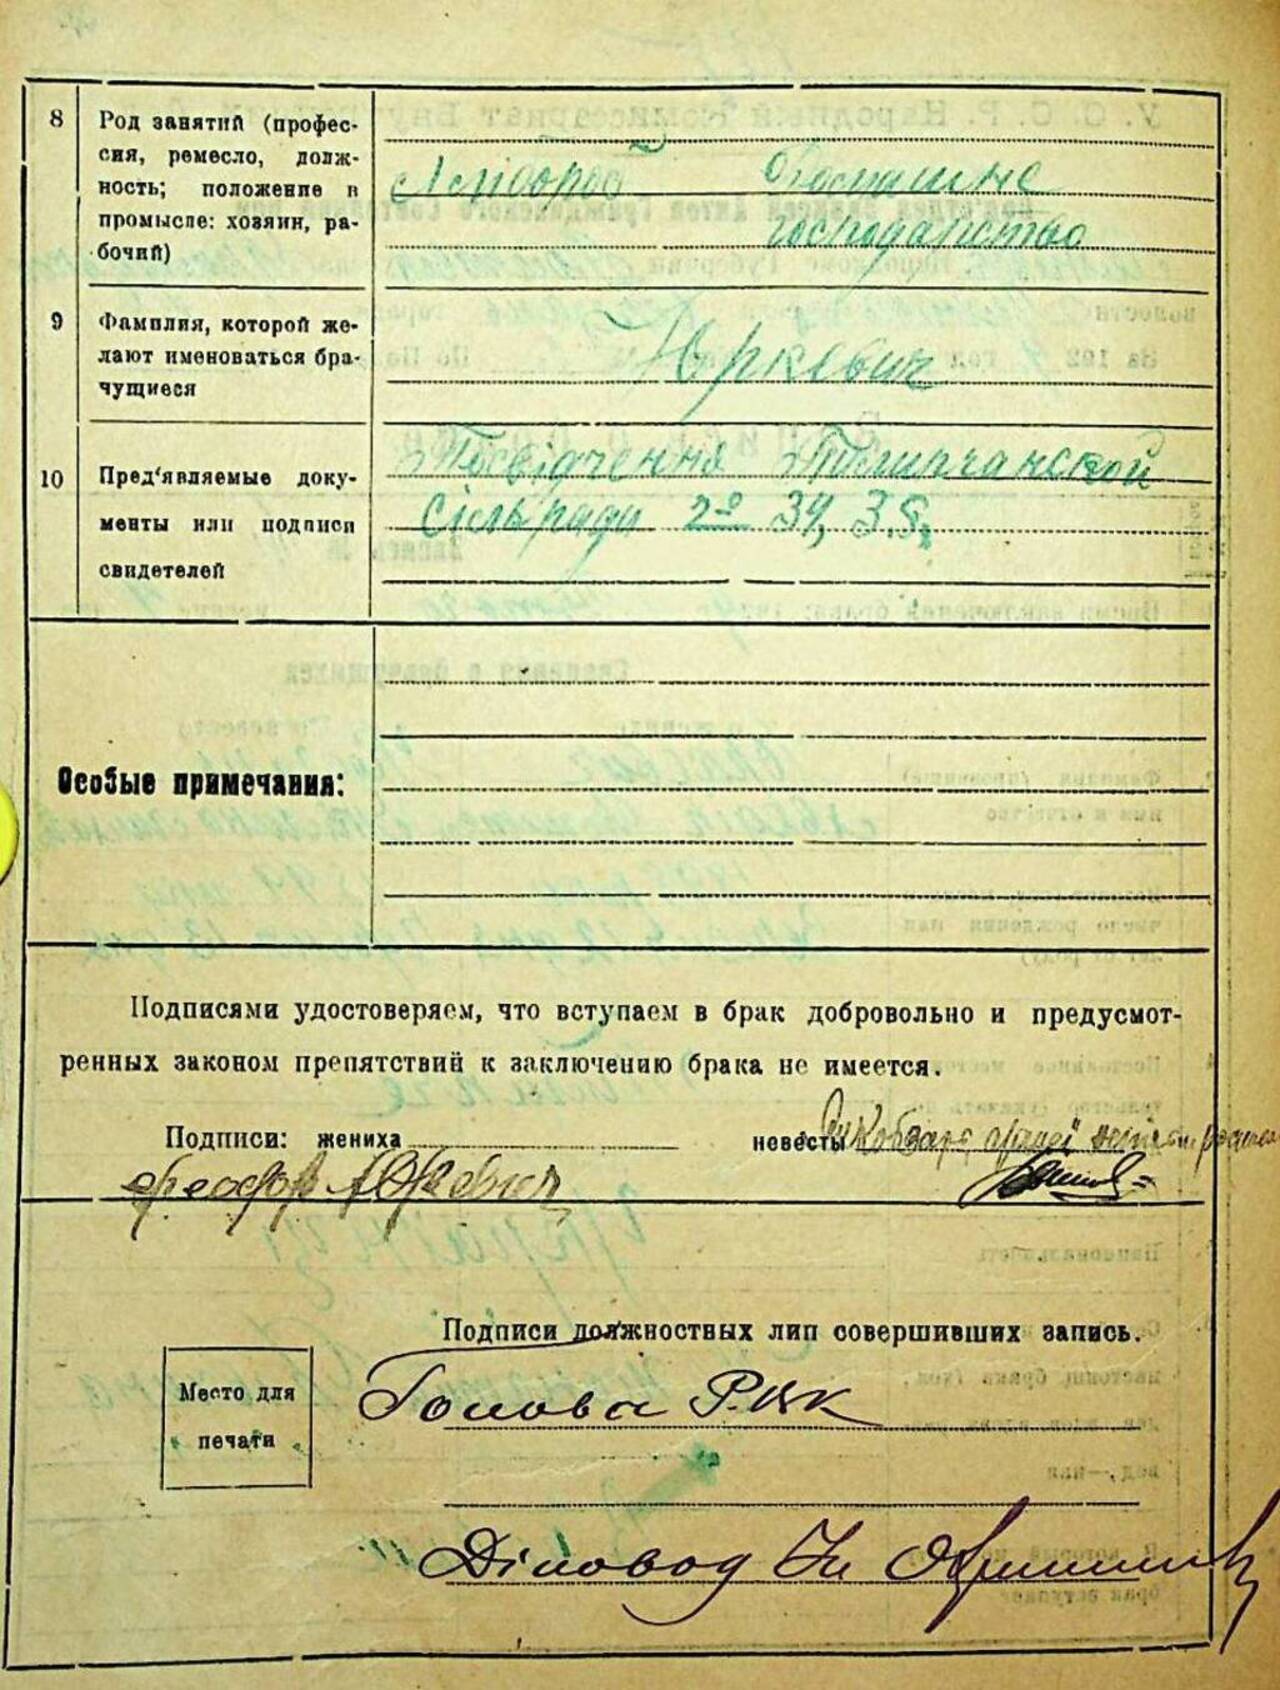 8 Род занятий (профес-
сия, ремесло, долж-
ность; положение в
промысле: хозяин, ра-
бочий)
Хлібороб Домашнє
господарство
9 Фамилия, которой же-
лают именоваться бра-
чущиеся
Юркевич
10 Пред'являемые доку-
менты или подписи
свидетелей
Посвідчення
Сільради 34, 35,
Особые примечания:
Подписями удостоверяем, что вступаем в брак добровольно и предусмот-
ренных законом препятствий к заключению брака не имеется.
Подписи: жениха невесты
Феодор Юркевич
Подписи должностных лип совершивших запись.
Место для
печати
Голова
Діловод